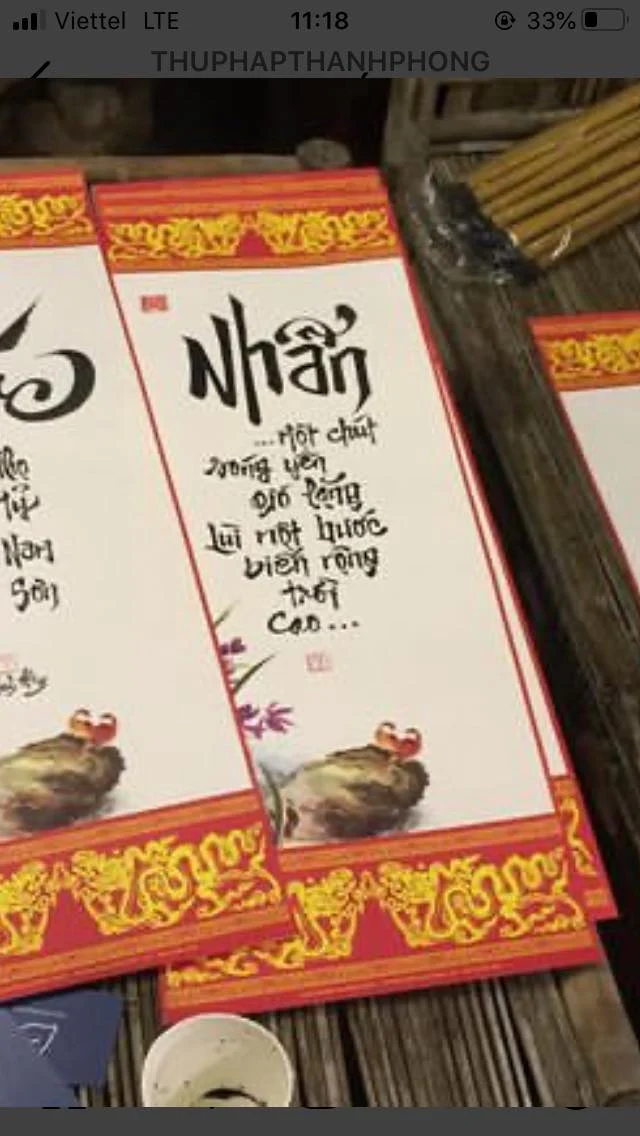 Viettel LTE 11:18 33%
THUPHAPTHANHPHONG
Nhẫn
...một chút
sóng yên
gió lặng
Lùi một bước
biển rộng
trời
cao...
Nam
Sơn